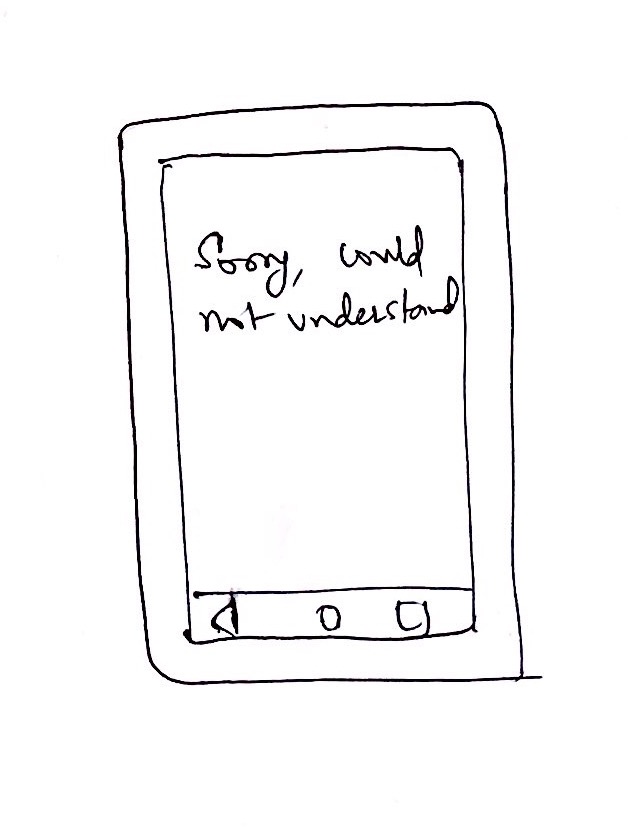 Sorry, could
not understand